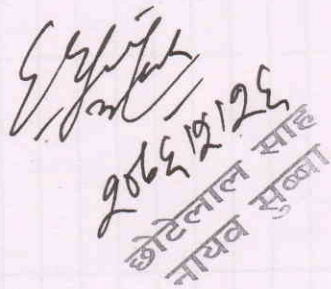 २०६६।२।२६
छोटेलाल साह
नायब सुब्बा